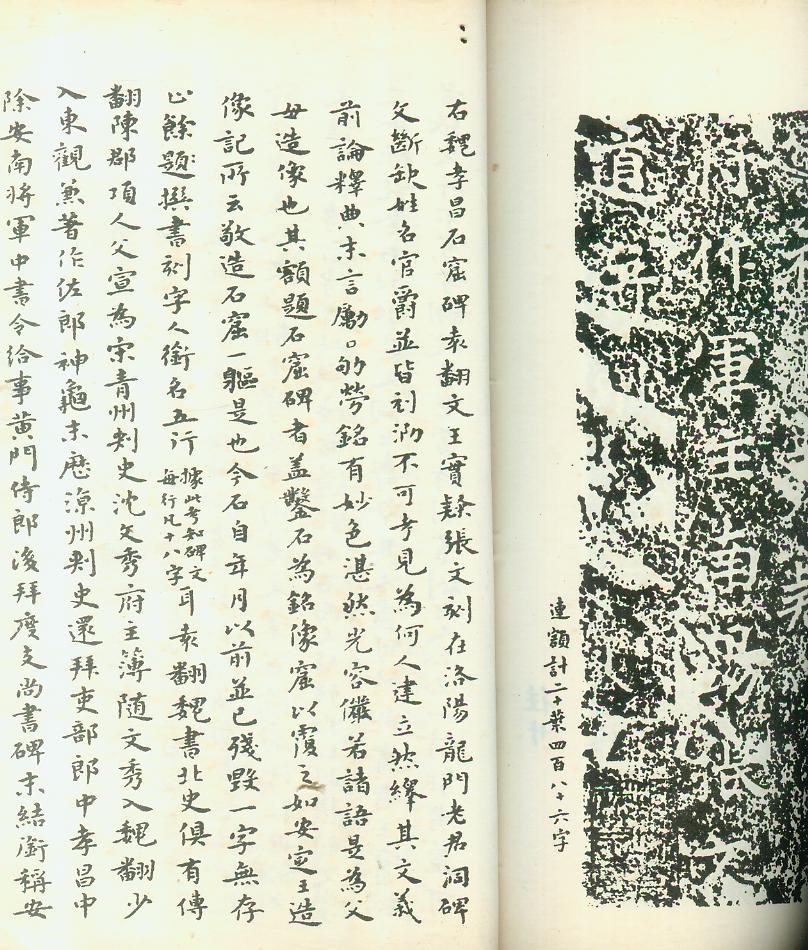 軍主南陽張文
連額計二十葉四百八十六字
右魏孝昌石窟碑袁翻文王實隸張文刻在洛陽龍門老君洞碑
文斷缺姓名官爵並皆刓泐不可考見為何人建立然繹其文義
前論釋典末言勵□劬勞銘有妙色湛然光容儼若諸語是為父
母造像也其額題石窟碑者蓋鑿石為銘像窟以覆之如安定王造
像記所云敬造石窟一軀是也今石自年月以前並已殘毀一字無存
止餘題撰書刻字人銜名五行據此考知碑文每行凡十八字耳袁翻魏書北史俱有傳
翻陳郡項人父宣為宋青州刺史沈文秀府主簿隨文秀入魏翻少
入東觀兼著作佐郎神龜末歷涼州刺史還拜吏部郎中孝昌中
除安南將軍中書令給事黃門侍郎後拜度支尚書碑末結銜稱安